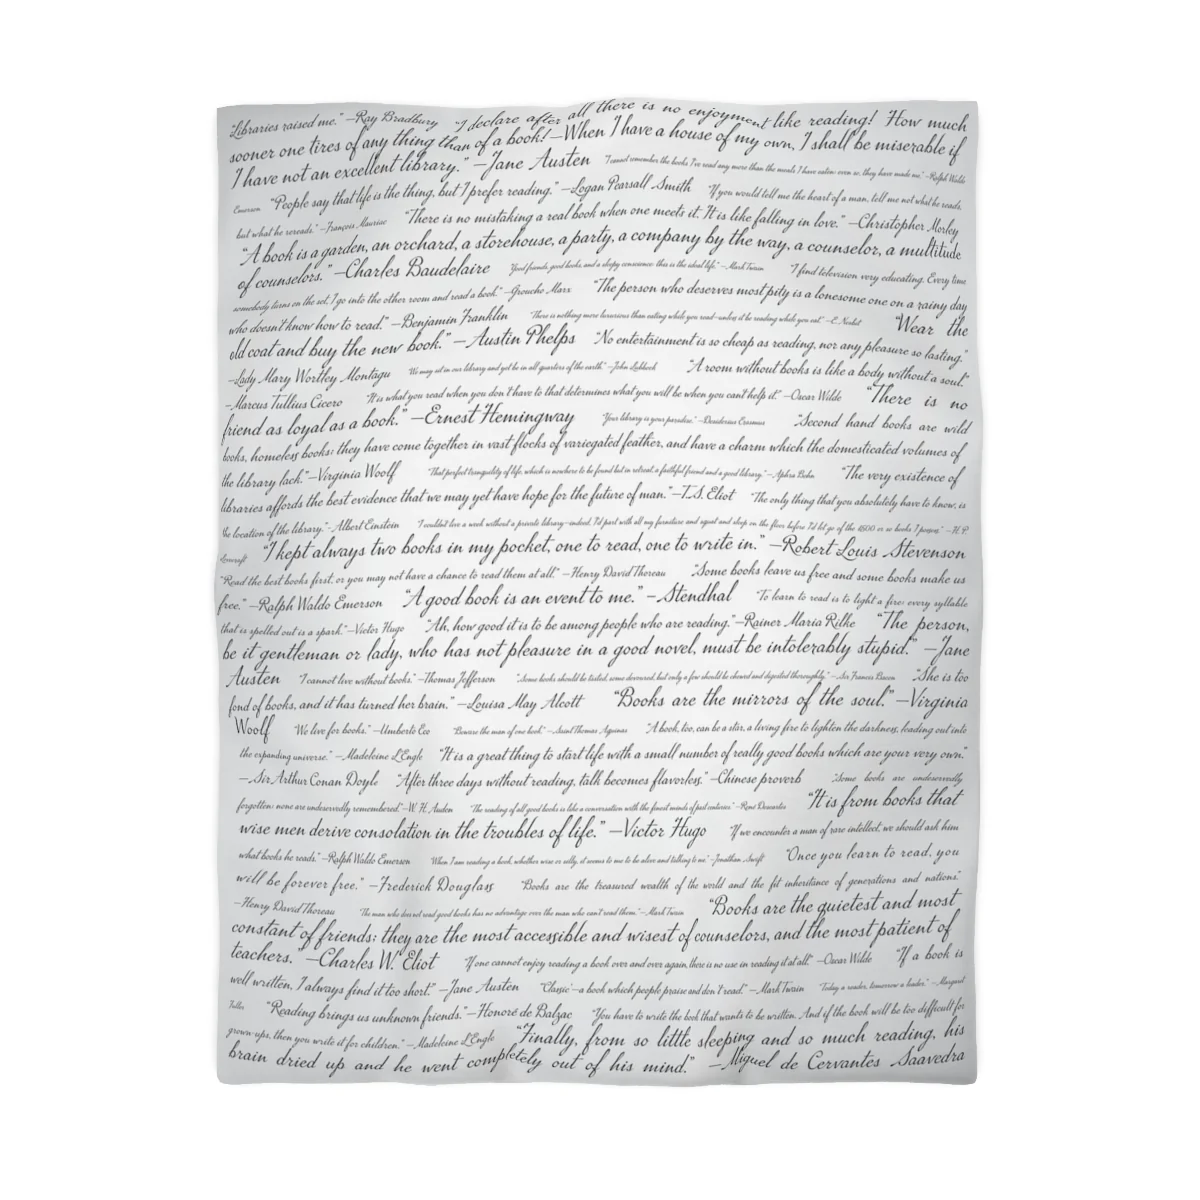 "Libraries raised me." —Ray Bradbury "I declare after all there is no enjoyment like reading! How much
sooner one tires of any thing than of a book!—When I have a house of my own, I shall be miserable if
I have not an excellent library." —Jane Austen "I cannot remember the books I've read any more than the meals I have eaten; even so, they have made me." —Ralph Waldo
Emerson "People say that life is the thing, but I prefer reading." —Logan Pearsall Smith "If you would tell me the heart of a man, tell me not what he reads,
but what he rereads." —François Mauriac "There is no mistaking a real book when one meets it. It is like falling in love." —Christopher Morley
"A book is a garden, an orchard, a storehouse, a party, a company by the way, a counselor, a multitude
of counselors." —Charles Baudelaire "Good friends, good books, and a sleepy conscience: this is the ideal life." —Mark Twain "I find television very educating. Every time
somebody turns on the set, I go into the other room and read a book." —Groucho Marx "The person who deserves most pity is a lonesome one on a rainy day
who doesn't know how to read." —Benjamin Franklin "There is nothing more luxurious than eating while you read—unless it be reading while you eat." —E. Nesbit "Wear the
old coat and buy the new book." — Austin Phelps "No entertainment is so cheap as reading, nor any pleasure so lasting."
—Lady Mary Wortley Montagu "We may sit in our library and yet be in all quarters of the earth." —John Lubbock "A room without books is like a body without a soul."
—Marcus Tullius Cicero "It is what you read when you don't have to that determines what you will be when you can't help it." —Oscar Wilde "There is no
friend as loyal as a book." —Ernest Hemingway "Your library is your paradise." —Desiderius Erasmus "Second hand books are wild
books, homeless books; they have come together in vast flocks of variegated feather, and have a charm which the domesticated volumes of
the library lack." —Virginia Woolf "That perfect tranquility of life, which is nowhere to be found but in retreat, a faithful friend and a good library." —Aphra Behn "The very existence of
libraries affords the best evidence that we may yet have hope for the future of man." —T.S. Eliot "The only thing that you absolutely have to know, is
the location of the library." —Albert Einstein "I couldn't live a week without a private library—indeed, I'd part with all my furniture and squat and sleep on the floor before I'd let go of the 1500 or so books I possess." —H.P.
Lovecraft "I kept always two books in my pocket, one to read, one to write in." —Robert Louis Stevenson
"Read the best books first, or you may not have a chance to read them at all." —Henry David Thoreau "Some books leave us free and some books make us
free." —Ralph Waldo Emerson "A good book is an event to me." — Stendhal "To learn to read is to light a fire; every syllable
that is spelled out is a spark." —Victor Hugo "Ah, how good it is to be among people who are reading." —Rainer Maria Rilke "The person,
be it gentleman or lady, who has not pleasure in a good novel, must be intolerably stupid." —Jane
Austen "I cannot live without books." —Thomas Jefferson "Some books should be tasted, some devoured, but only a few should be chewed and digested thoroughly." —Sir Francis Bacon "She is too
fond of books, and it has turned her brain." —Louisa May Alcott "Books are the mirrors of the soul." —Virginia
Woolf "We live for books." —Umberto Eco "Beware the man of one book." —Saint Thomas Aquinas "A book, too, can be a star, a living fire to lighten the darkness, leading out into
the expanding universe." —Madeleine L'Engle "It is a great thing to start life with a small number of really good books which are your very own."
—Sir Arthur Conan Doyle "After three days without reading, talk becomes flavorless." —Chinese proverb "Some books are undeservedly
forgotten; none are undeservedly remembered." —W. H. Auden "The reading of all good books is like a conversation with the finest minds of past centuries." —René Descartes "It is from books that
wise men derive consolation in the troubles of life." —Victor Hugo "If we encounter a man of rare intellect, we should ask him
what books he reads." —Ralph Waldo Emerson "When I am reading a book, whether wise or silly, it seems to me to be alive and talking to me." —Jonathan Swift "Once you learn to read, you
will be forever free." —Frederick Douglass "Books are the treasured wealth of the world and the fit inheritance of generations and nations."
—Henry David Thoreau "The man who does not read good books has no advantage over the man who can't read them." —Mark Twain "Books are the quietest and most
constant of friends; they are the most accessible and wisest of counselors, and the most patient of
teachers." —Charles W. Eliot "If one cannot enjoy reading a book over and over again, there is no use in reading it at all." —Oscar Wilde "If a book is
well written, I always find it too short." —Jane Austen "'Classic'—a book which people praise and don't read." —Mark Twain "Today a reader, tomorrow a leader." —Margaret
Fuller "Reading brings us unknown friends." —Honoré de Balzac "You have to write the book that wants to be written. And if the book will be too difficult for
grown-ups, then you write it for children." —Madeleine L'Engle "Finally, from so little sleeping and so much reading, his
brain dried up and he went completely out of his mind." —Miguel de Cervantes Saavedra